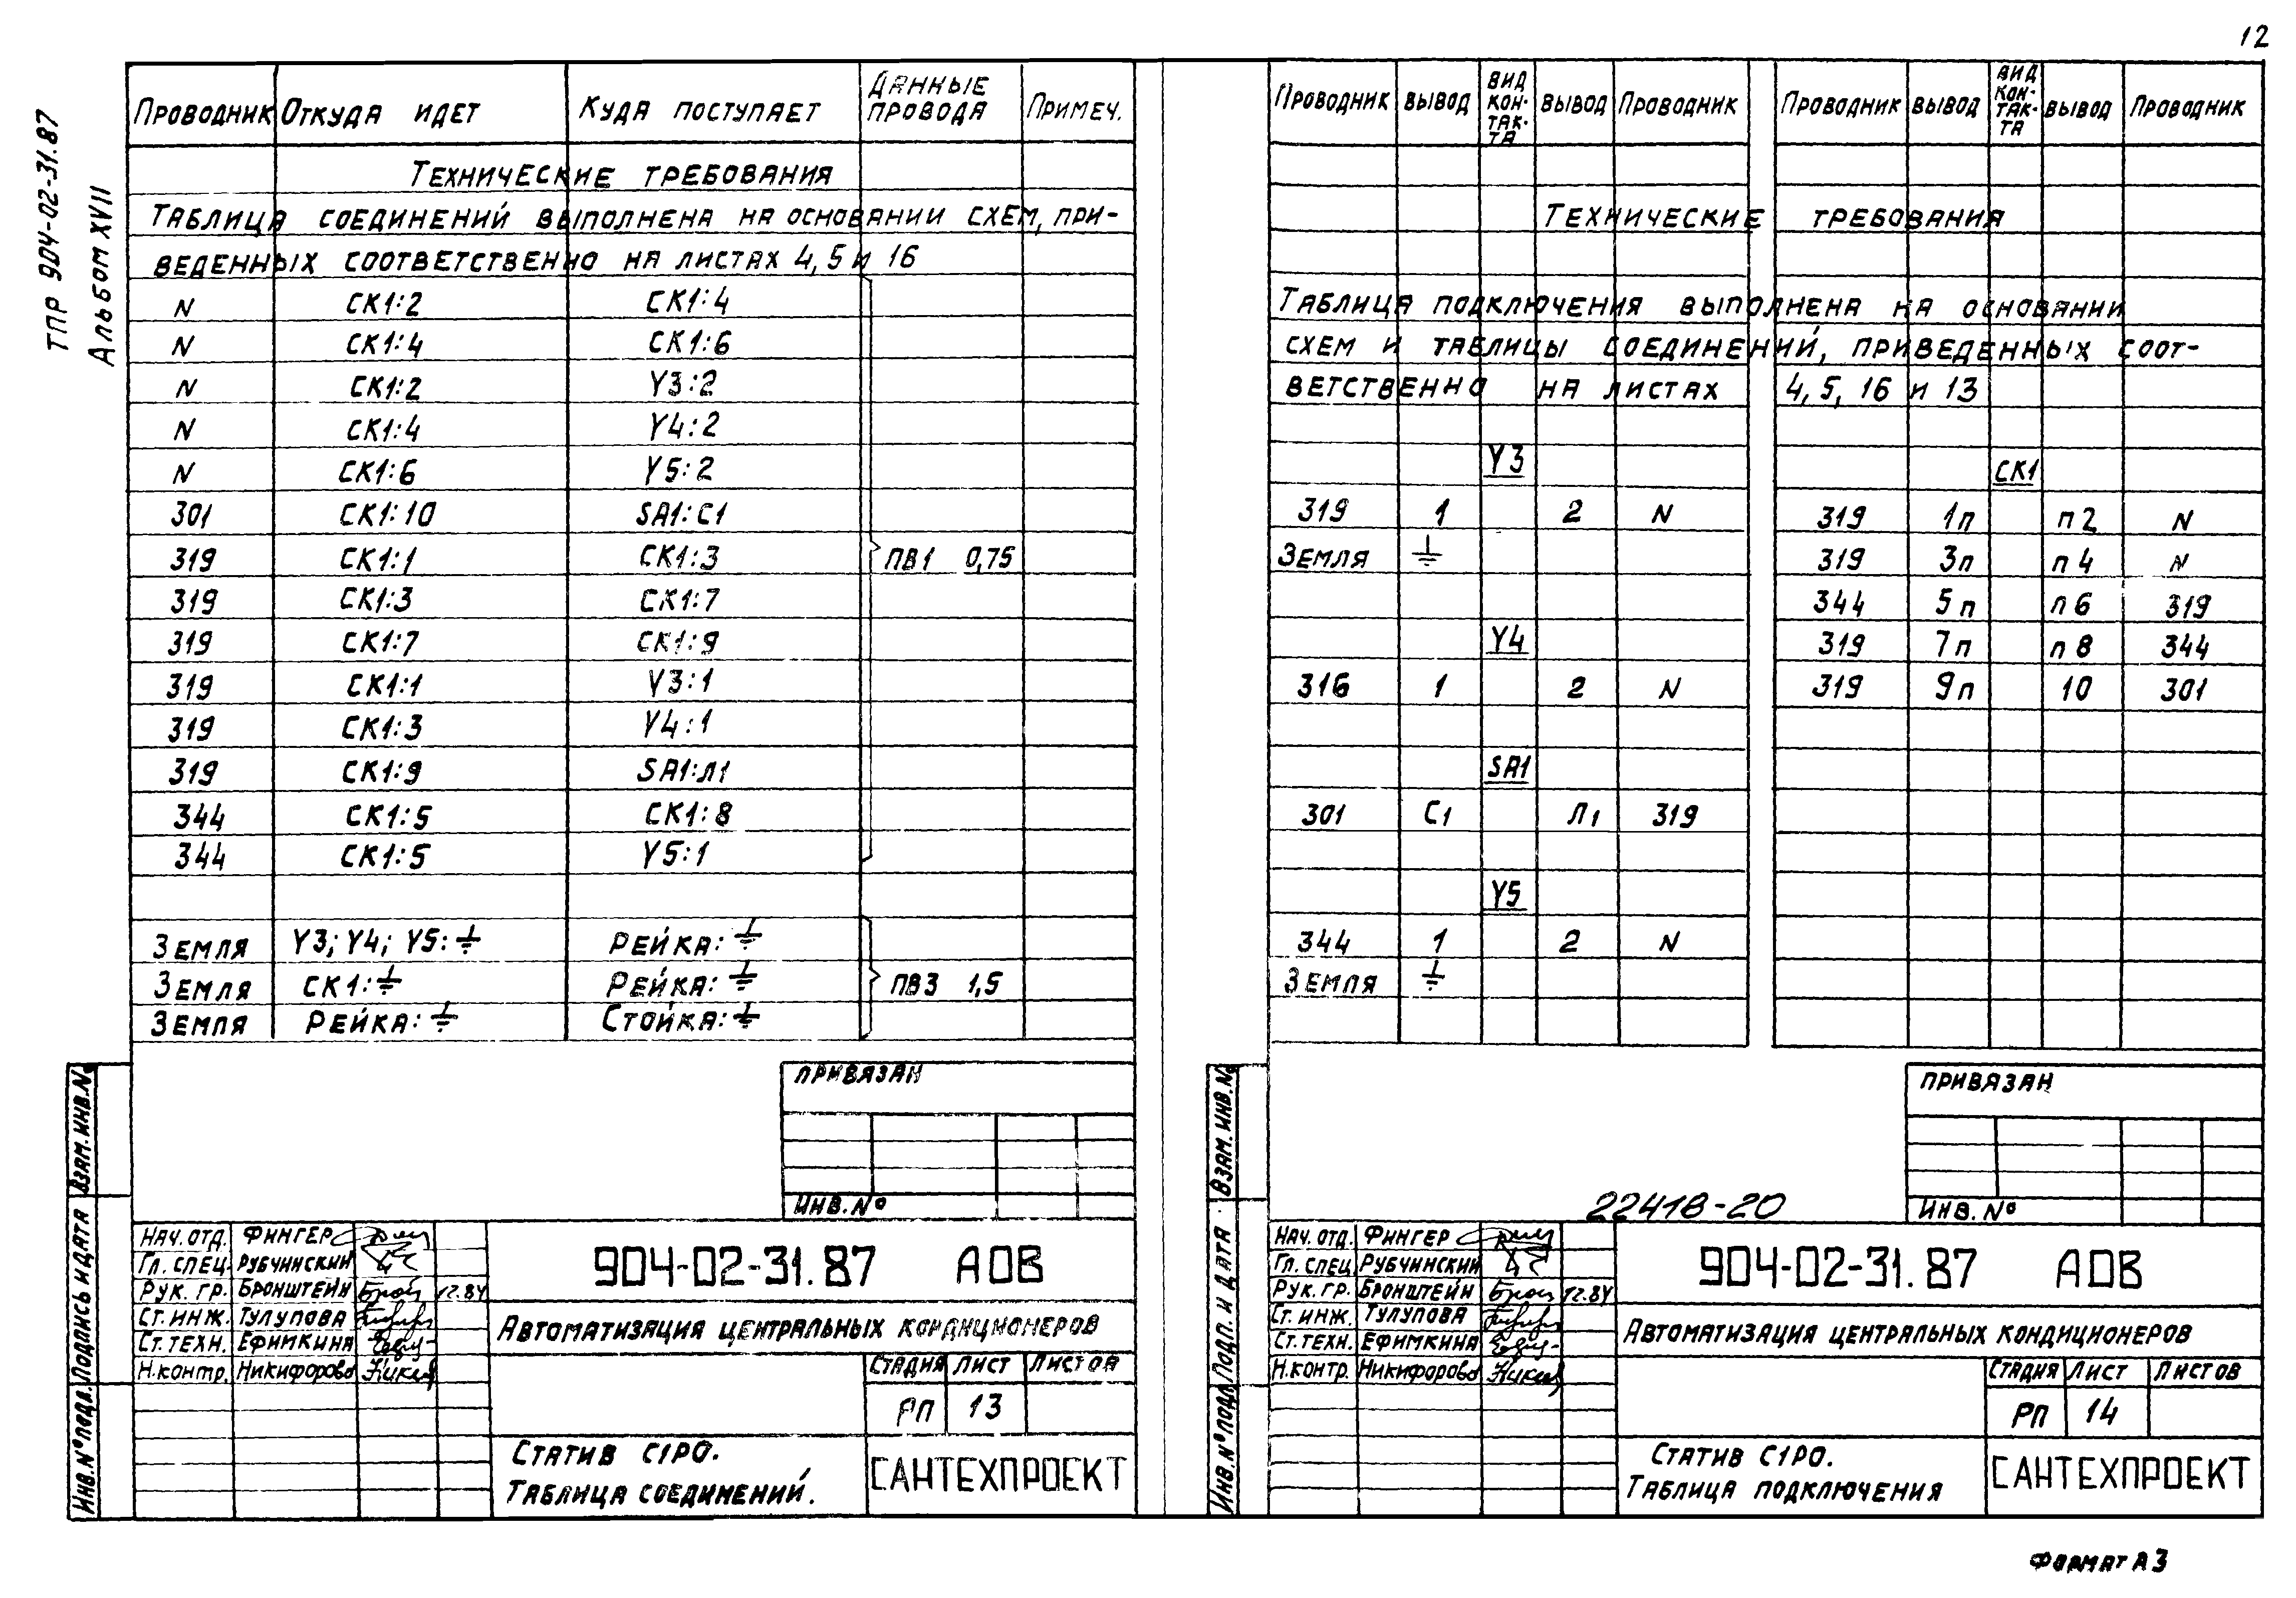 12
ТПР 904-02-31.87
Альбом XVII
Проводник Откуда идет Куда поступает Данные провода Примеч.
Технические требования
Таблица соединений выполнена на основании схем, при-
веденных соответственно на листах 4, 5 и 16
N СК1:2 СК1:4
N СК1:4 СК1:6
N СК1:2 Y3:2
N СК1:4 Y4:2
N СК1:6 Y5:2
301 СК1:10 SA1:С1
319 СК1:1 СК1:3 ПВ1 0,75
319 СК1:3 СК1:7
319 СК1:7 СК1:9
319 СК1:1 Y3:1
319 СК1:3 Y4:1
319 СК1:9 SA1:Л1
344 СК1:5 СК1:8
344 СК1:5 Y5:1
Земля Y3; Y4; Y5:⏚ Рейка:⏚
Земля СК1:⏚ Рейка:⏚ ПВ3 1,5
Земля Рейка:⏚ Стойка:⏚
Привязан
Инв.№
Взам.инв.№
Подпись и дата
Инв.№ подл.
Нач.отд. Фингер
Гл.спец. Рубчинский
Рук.гр. Бронштейн 12.84
Ст.инж. Тулупова
Ст.техн. Ефимкина
Н.контр. Никифорова
904-02-31.87 АОВ
Автоматизация центральных кондиционеров
Стадия Лист Листов
РП 13
Статив С1РО.
Таблица соединений.
САНТЕХПРОЕКТ
Проводник вывод вид кон-так-та вывод Проводник Проводник вывод вид кон-так-та вывод Проводник
Технические требования
Таблица подключения выполнена на основании
схем и таблицы соединений, приведенных соот-
ветственно на листах 4, 5, 16 и 13
Y3
319 1 2 N
Земля ⏚
Y4
316 1 2 N
SA1
301 С1 Л1 319
Y5
344 1 2 N
Земля ⏚
СК1
319 1п п2 N
319 3п п4 N
344 5п п6 319
319 7п п8 344
319 9п 10 301
Привязан
Инв.№
22418-20
Взам.инв.№
Подп. и дата
Инв.№ подл.
Нач.отд. Фингер
Гл.спец. Рубчинский
Рук.гр. Бронштейн 12.84
Ст.инж. Тулупова
Ст.техн. Ефимкина
Н.контр. Никифорова
904-02-31.87 АОВ
Автоматизация центральных кондиционеров
Стадия Лист Листов
РП 14
Статив С1РО.
Таблица подключения
САНТЕХПРОЕКТ
Формат А3